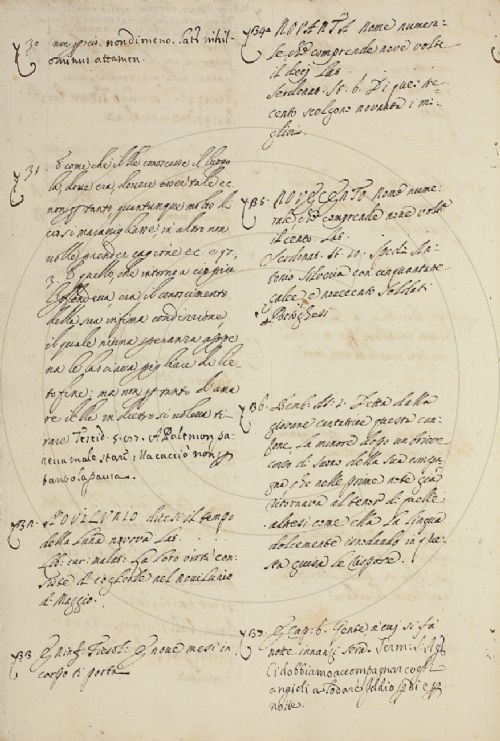 30 non per ciò. nondimeno. Lat. nihil-
ominus attamen.
31. E come che il Re conoscesse il luogo
la dove era dovere esser tale ec.
non per tanto quantunque molto di
ciò si maravigliasse, in altro non
volle prender cagione ec. e 97.
3. E quello, che intorno a ciò più
l'offendeva era il conoscimento
della sua infima condizione,
il quale niuna speranza appe-
na le lasciava pigliare di lie-
to fine: ma non per tanto d'ama-
re il Re indietro si voleva ti-
rare Teseid. 5. 107. A Palemon pa-
reva male stare, Ma cacciò non per
tanto la paura.
B32. NOVILUNIO dicesi il tempo
della luna nuova Lat.
Lib. cur. malat. La loro virtù con-
siste di coglierle nel novilunio
di Maggio.
B33 Ninf. Fiesol. E nove mesi in
corpo ti portai
B34 NOVANTA nome numera-
le che comprende nove volte
il dieci Lat.
Serdonat. St. 6. Di que' tre-
cento scelgono novanta i mi-
gliori.
B35. NOVECENTO Nome nume-
rale che comprende nove volte
il cento. Lat.
Serdonat. St. 10. Spedì An-
tonio Silveria con cinquantatre
e novecento soldati
Portoghesi
B36. Bemb. As. 1. Detta dalla
giovane cantatrice questa can-
zone, la minore dopo un brieve
corso di suono della sua compa-
gna che nelle prime note già
ritornava al tenor di quelle
altresì come ella la lingua
dolcemente isnodando in que-
sta guisa le rispose.
B37. Cap. 6. Gente a cui si fa
notte innanzi sera.
Ci dobbiamo accompagnar cogli
angioli a lodare Iddio dì e
notte.